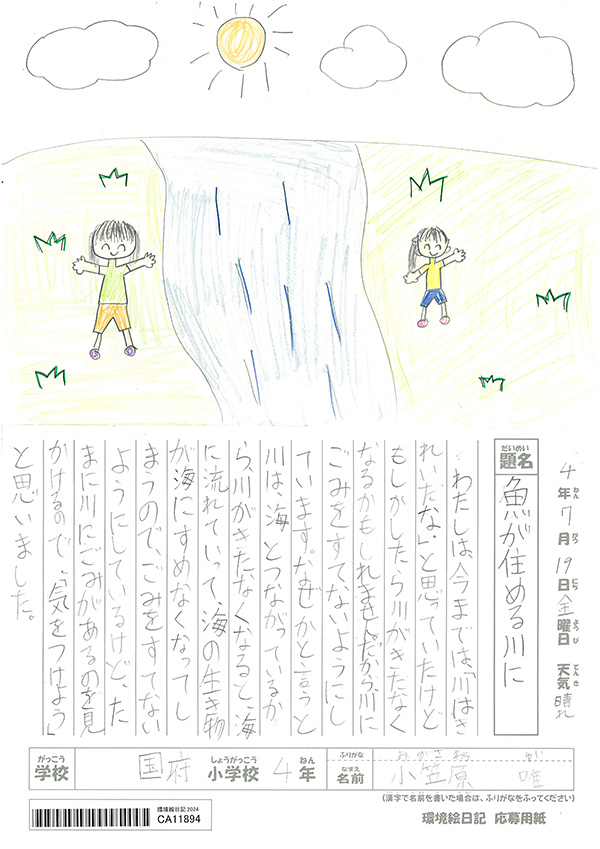 4年7月19日金曜日 天気 晴れ
ねん がつ にち ようび てんき
だいめい
題名 魚が住める川に
わたしは今までは「川はき
れいだな」と思っていたけど
もしかしたら川がきたなく
なるかもしれません。だから川に
ごみをすてないようにし
ています。なぜかと言うと
川は海とつながっているか
ら、川がきたなくなると、海
に流れていって、海の生き物
が海にすめなくなってし
まうので、ごみをすてない
ようにしているけど、た
まに川にごみがあるのを見
かけるので、「気をつけよう」
と思いました。
がっこう しょうがっこう ねん
学校 国府 小学校 4年
ふりがな おがさわら
なまえ
名前 小笠原 唯
(漢字で名前を書いた場合は、ふりがなをふってください)
環境絵日記2024
CA11894
環境絵日記 応募用紙